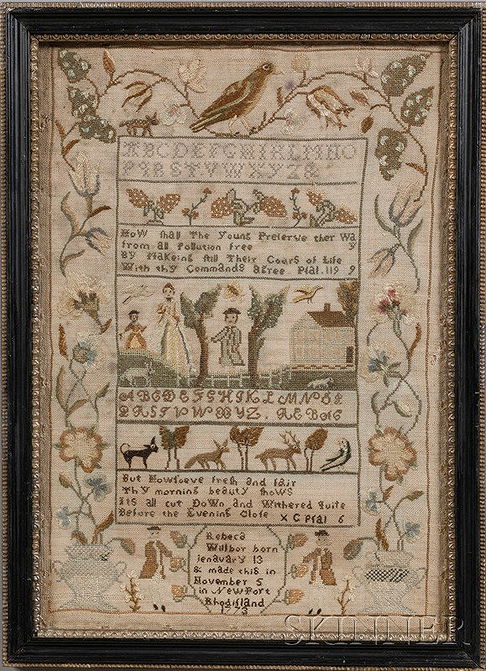 ABCDEFGHIKLMNO
PQRSTVWXYZ&
How shall The Young Preserve ther Wa
y
from all Pollution free
By Makeing still Their Cours of Life
With thy Commands agree. Psal. 119 9
ABCDEFGHIKLMNOP
QRSTVWXYZ.
But Howsoeve fresh and fair
Thy morning beauty shows
Its all cut Down and Withered quite
Before the Evening Close X C Psal 6
Rebeca
Wilbor born
ienavary 13
& made this in
November 5
in NewPort
Rhodisland
1773
SKINNER